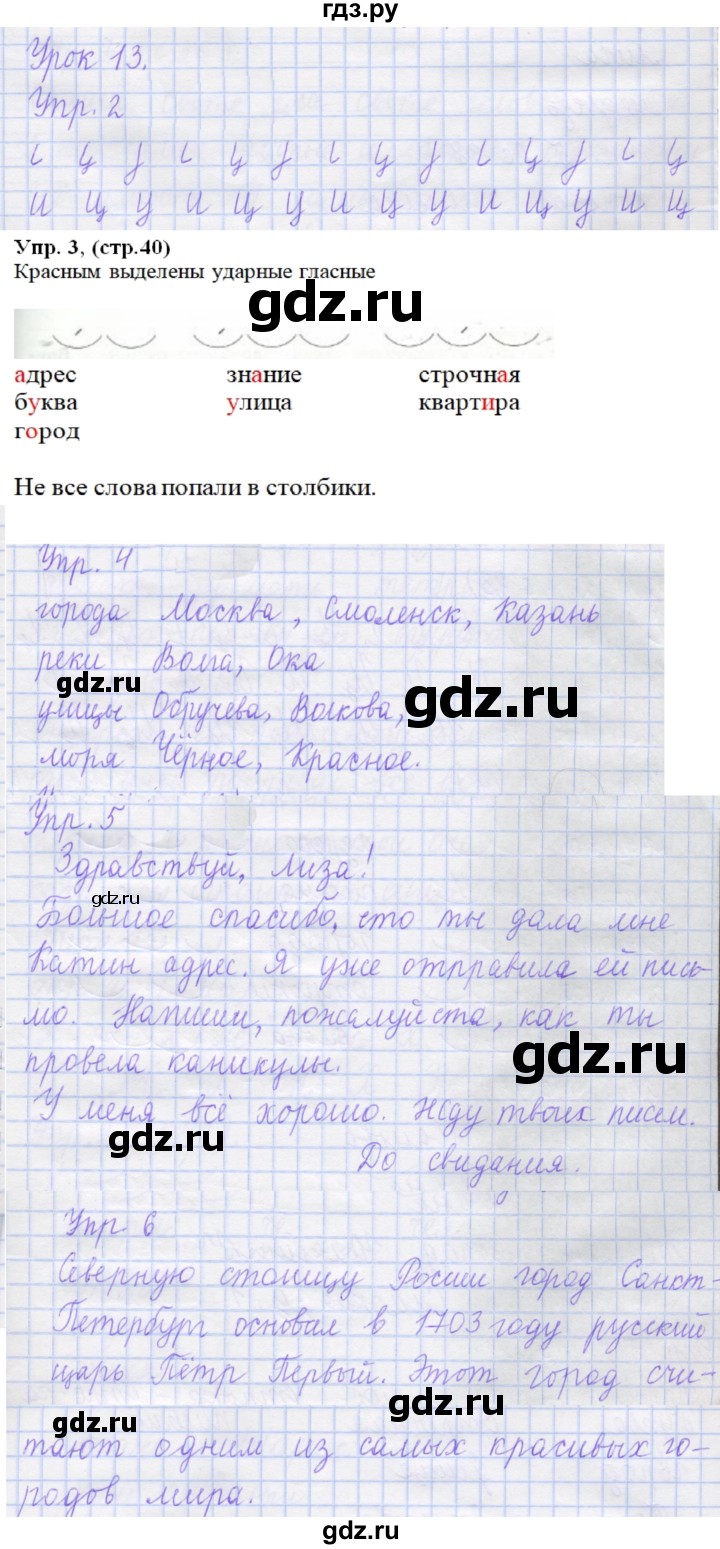 гдз.ру
Урок 13.
Упр. 2
и ц у и ц у и ц у и ц у и ц
Упр. 3, (стр.40)
Красным выделены ударные гласные
gdz.ru
адрес знание строчная
буква улица квартира
город
Не все слова попали в столбики.
Упр. 4
города Москва, Смоленск, Казань
реки Волга, Ока
gdz.ru
gdz.ru
улицы Обручева, Волкова,
моря Чёрное, Красное.
Упр. 5
Здравствуй, Лиза!
gdz.ru
Большое спасибо, что ты дала мне
Катин адрес. Я уже отправила ей пись-
мо. Напиши, пожалуйста, как ты
gdz.ru
провела каникулы.
У меня всё хорошо. Жду твоих писем.
gdz.ru
До свидания.
Упр 6
Северную столицу России город Санкт-
Петербург основал в 1703 году русский
царь Пётр Первый. Этот город счи-
gdz.ru
gdz.ru
тают одним из самых красивых го-
родов мира.
gdz.ru